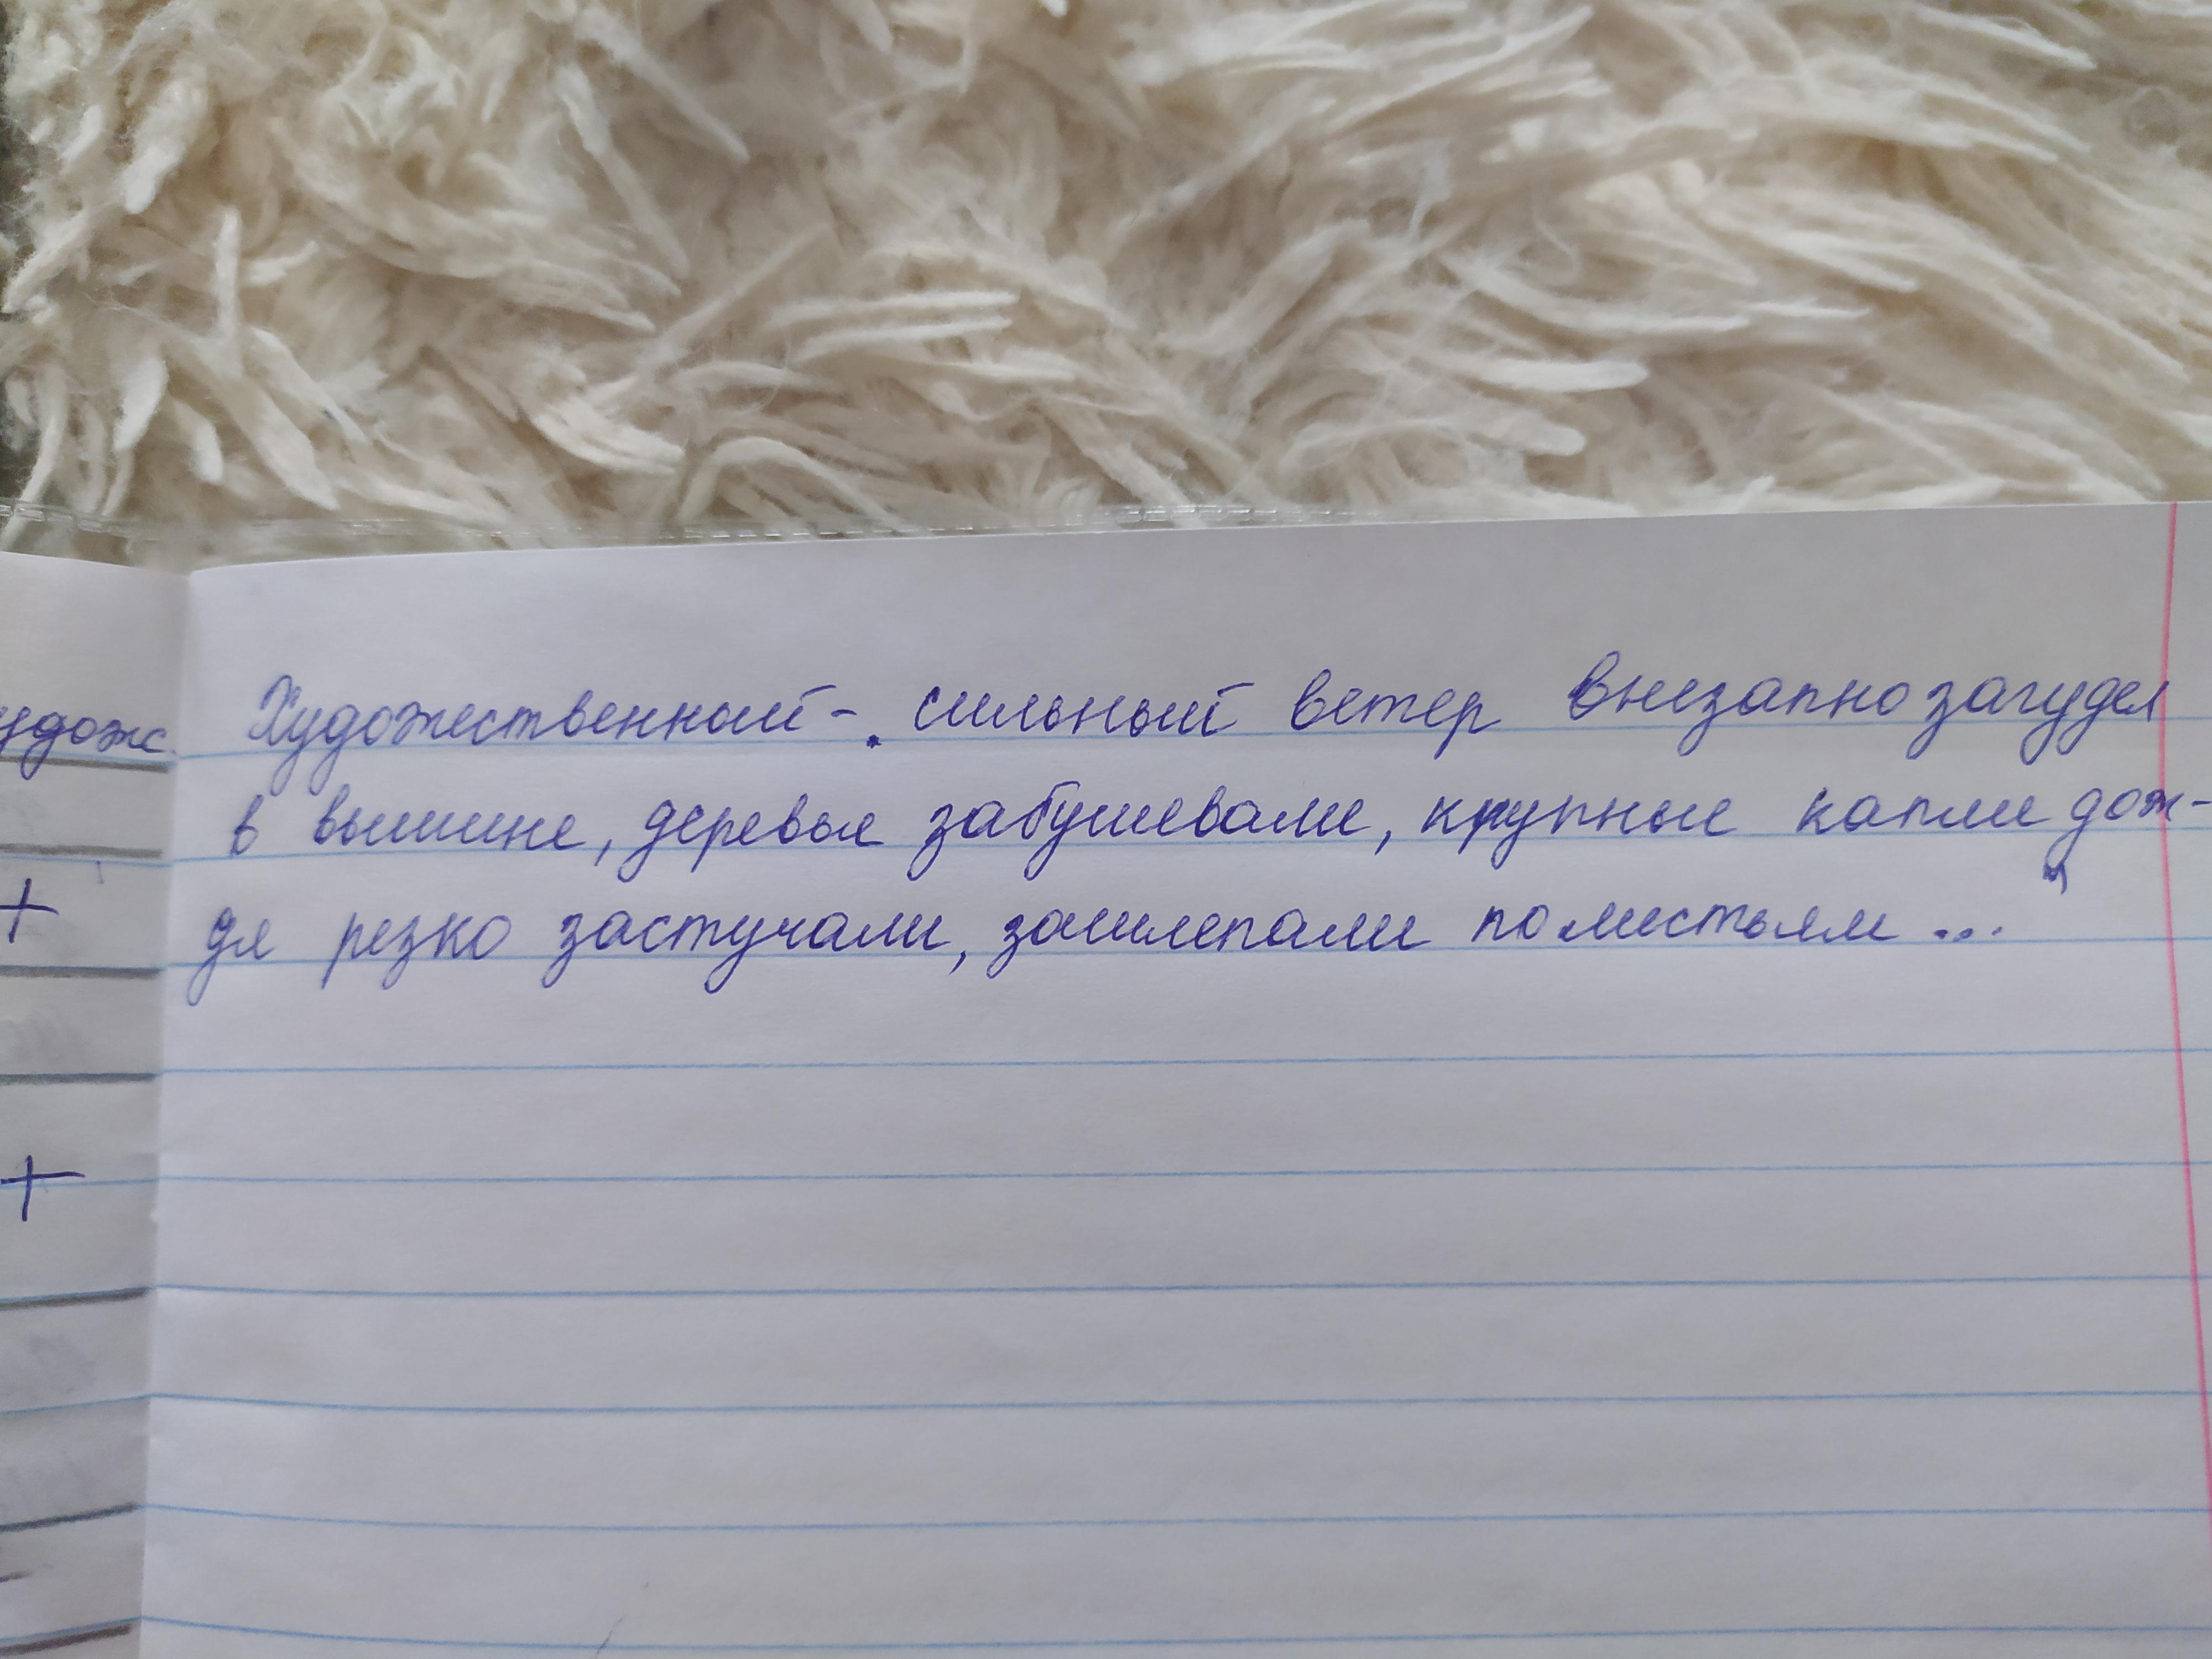 удож. Художественный - „сильный ветер внезапно загудел
в вышине, деревья забушевали, крупные капли дож-
дя резко застучали, зашлепали по листьям ..."
+
+